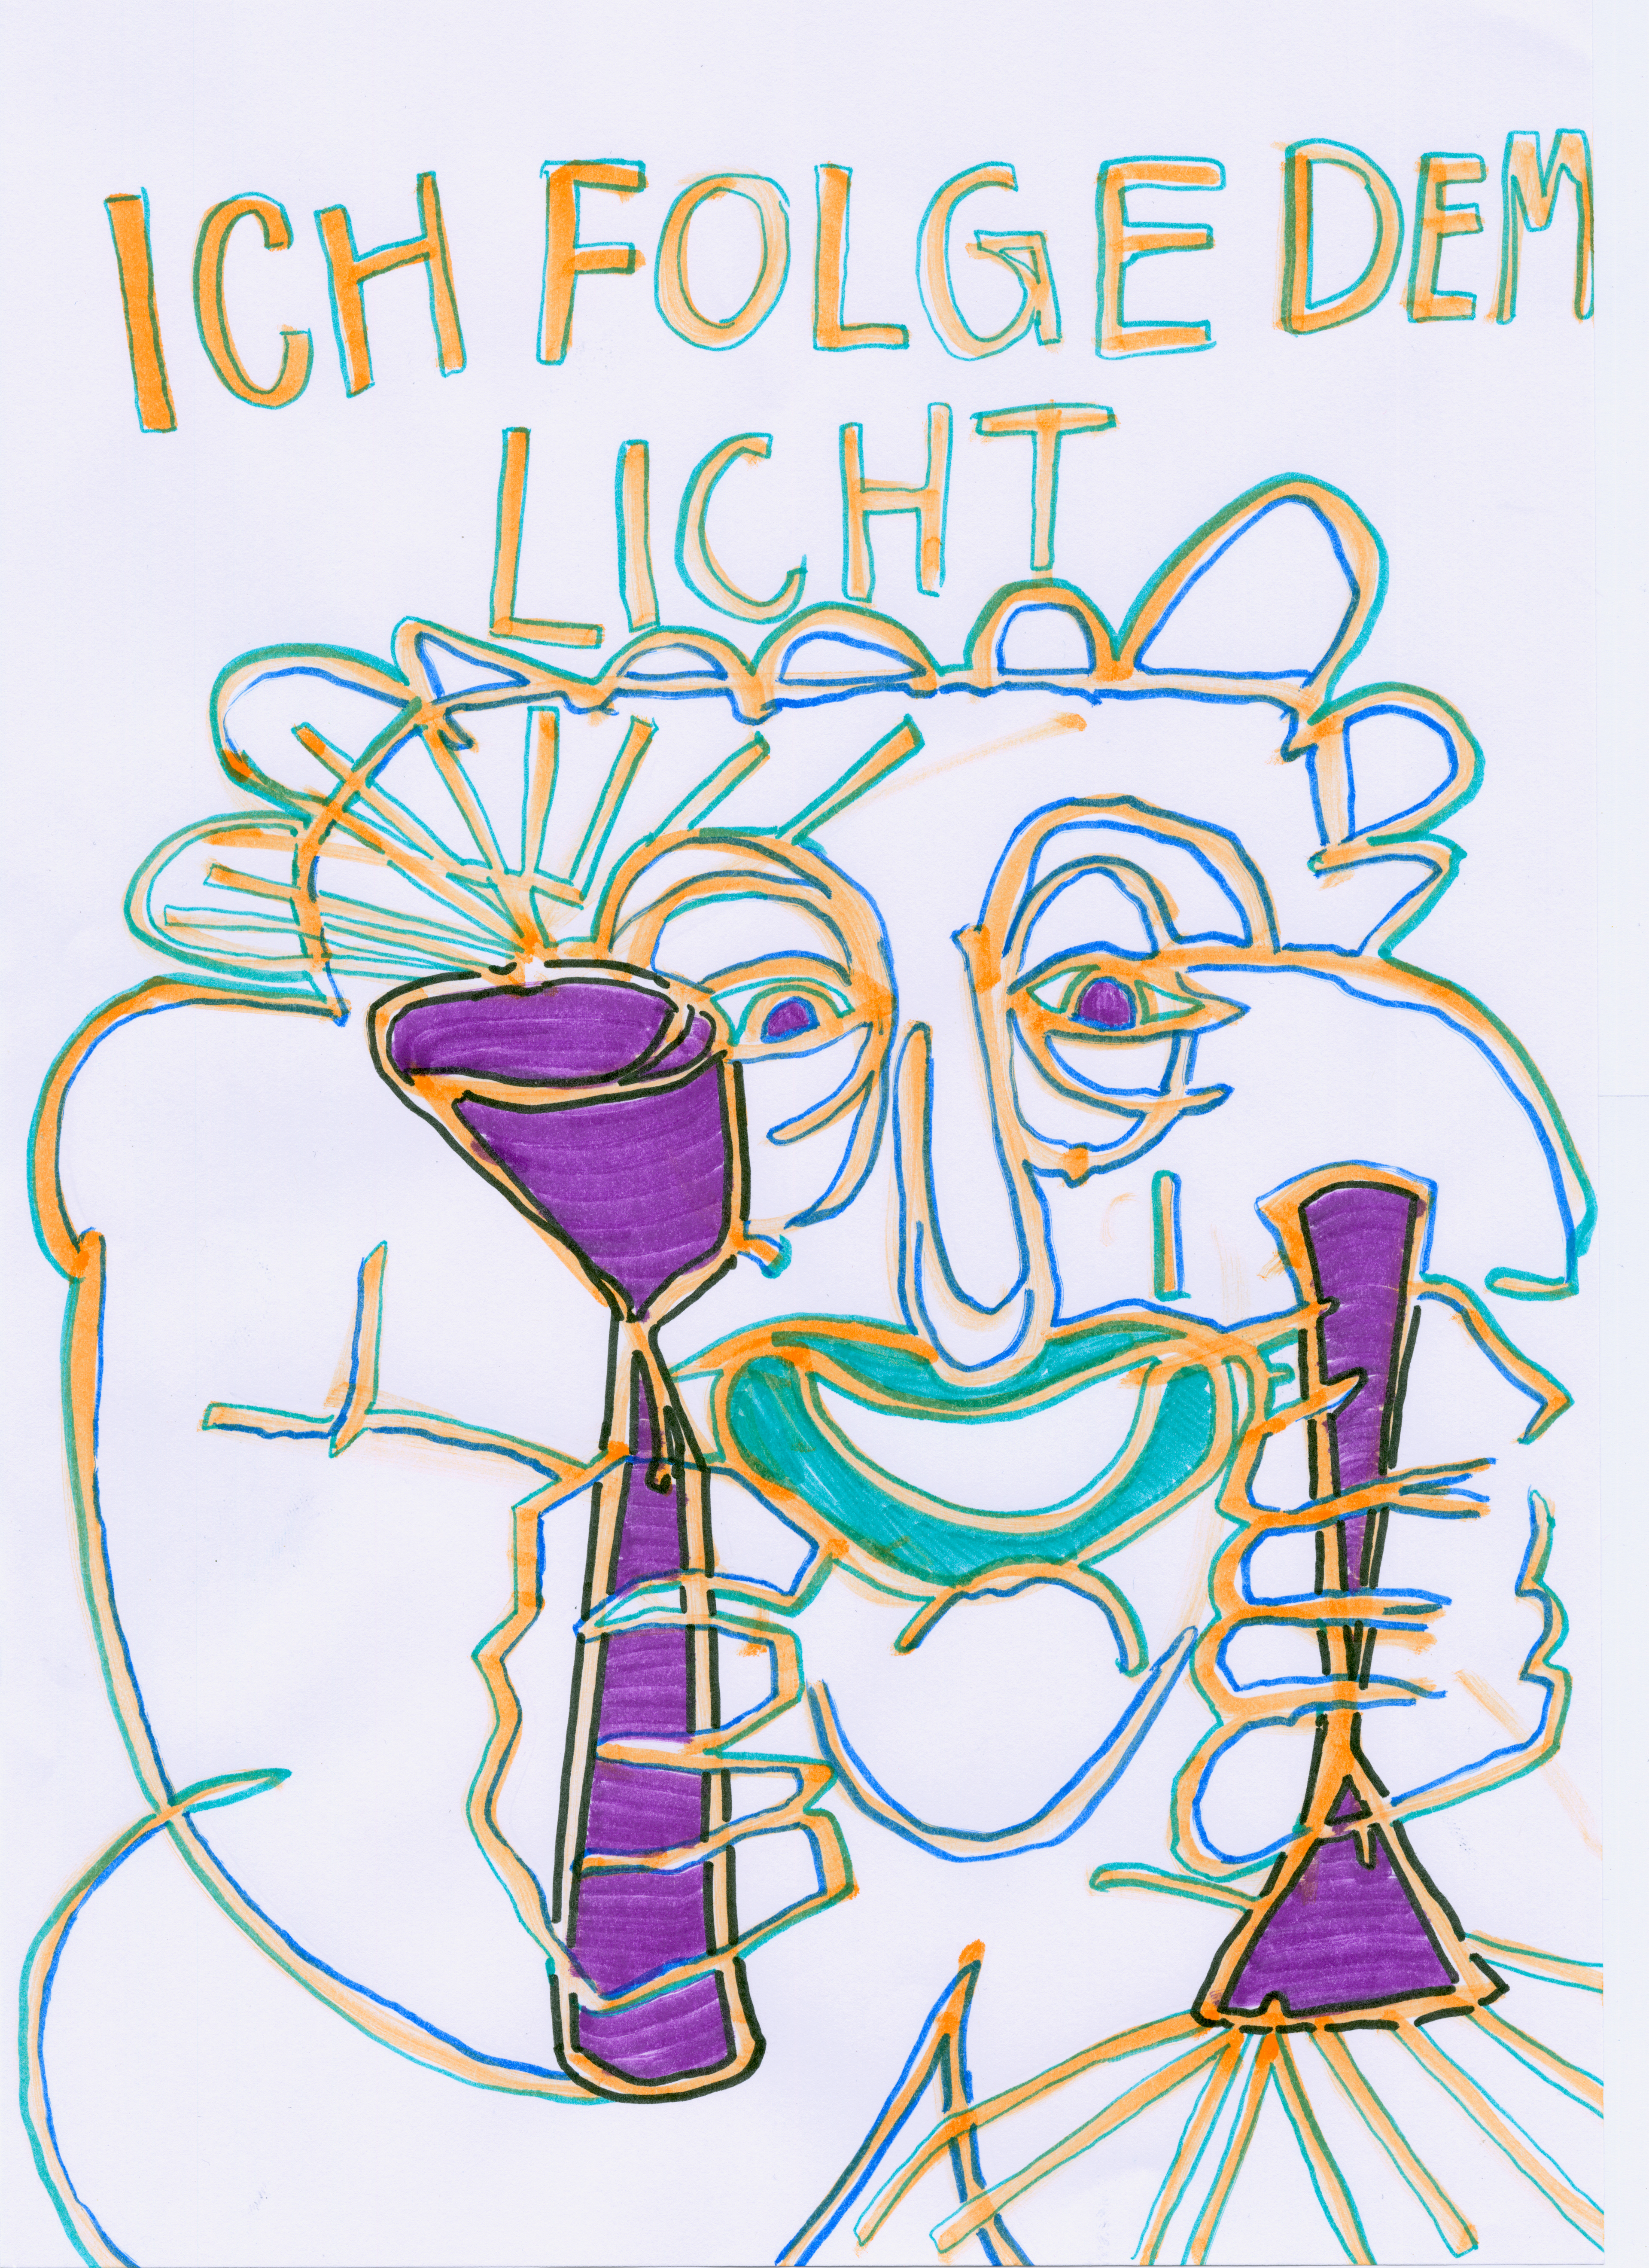 ICH FOLGE DEM
LICHT